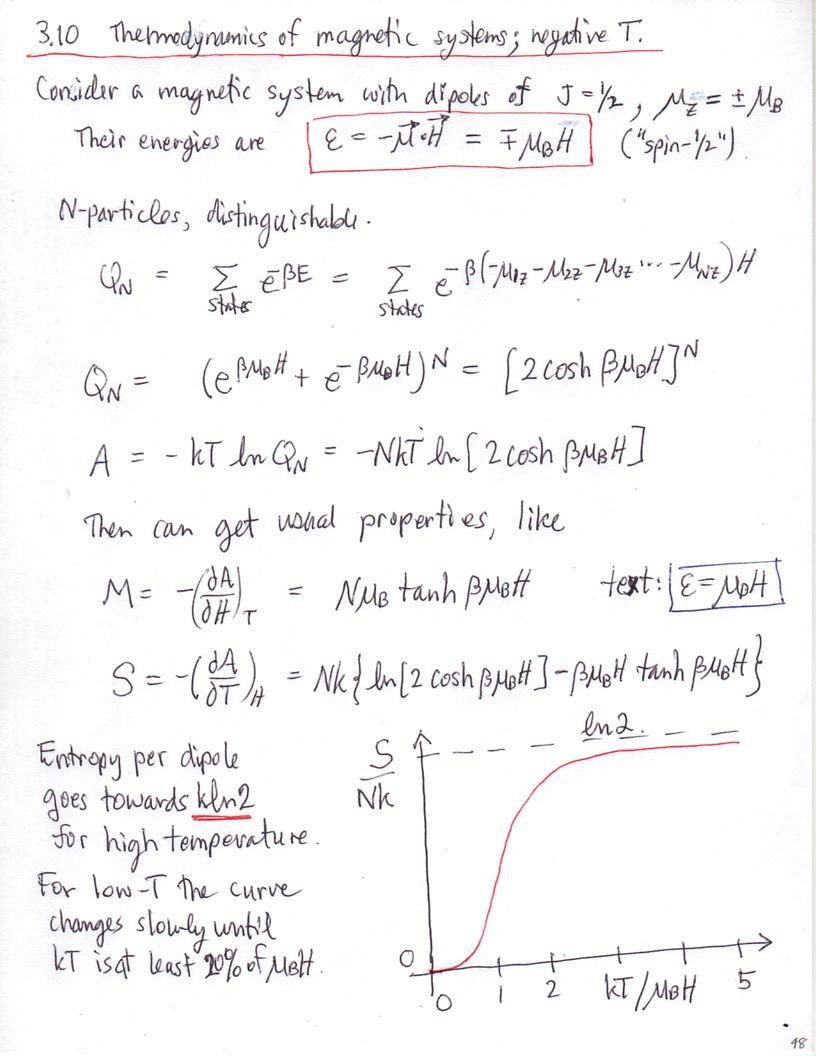 3.10 Thermodynamics of magnetic systems; negative T.
Consider a magnetic system with dipoles of J=1/2, μz = ±μB
Their energies are ε = -μ⃗·H⃗ = ∓μBH ("spin-1/2")
N-particles, distinguishable.
QN = Σstates e^-βE = Σstates e^-β(-μ1z-μ2z-μ3z...-μNz)H
QN = (e^βμBH + e^-βμBH)^N = [2cosh βμBH]^N
A = -kT ln QN = -NkT ln[2cosh βμBH]
Then can get usual properties, like
M = -(∂A/∂H)T = NμB tanh βμBH text: ε=μBH
S = -(∂A/∂T)H = Nk{ln[2cosh βμBH] - βμBH tanh βμBH}
Entropy per dipole
goes towards kln2
for high temperature.
For low-T the curve
changes slowly until
kT is at least 20% of μBH.
S/Nk
ln2.
0
0 1 2 kT/μBH 5
48